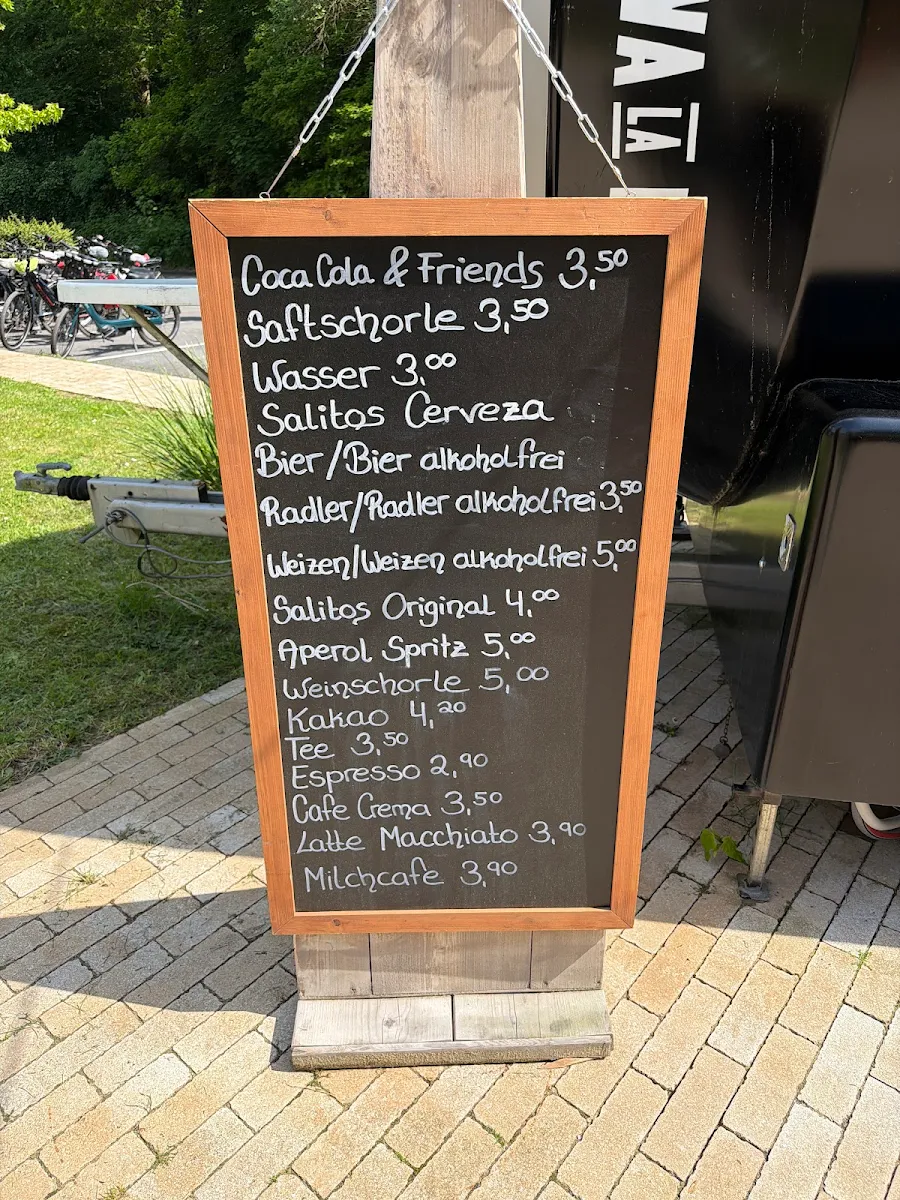 WA
LA
Coca Cola & Friends 3,50
Saftschorle 3,50
Wasser 3,00
Salitos Cerveza
Bier/Bier alkoholfrei
Radler/Radler alkoholfrei 3,50
Weizen/Weizen alkoholfrei 5,00
Salitos Original 4,00
Aperol Spritz 5,00
Weinschorle 5,00
Kakao 4,20
Tee 3,50
Espresso 2,90
Cafe Crema 3,50
Latte Macchiato 3,90
Milchcafe 3,90